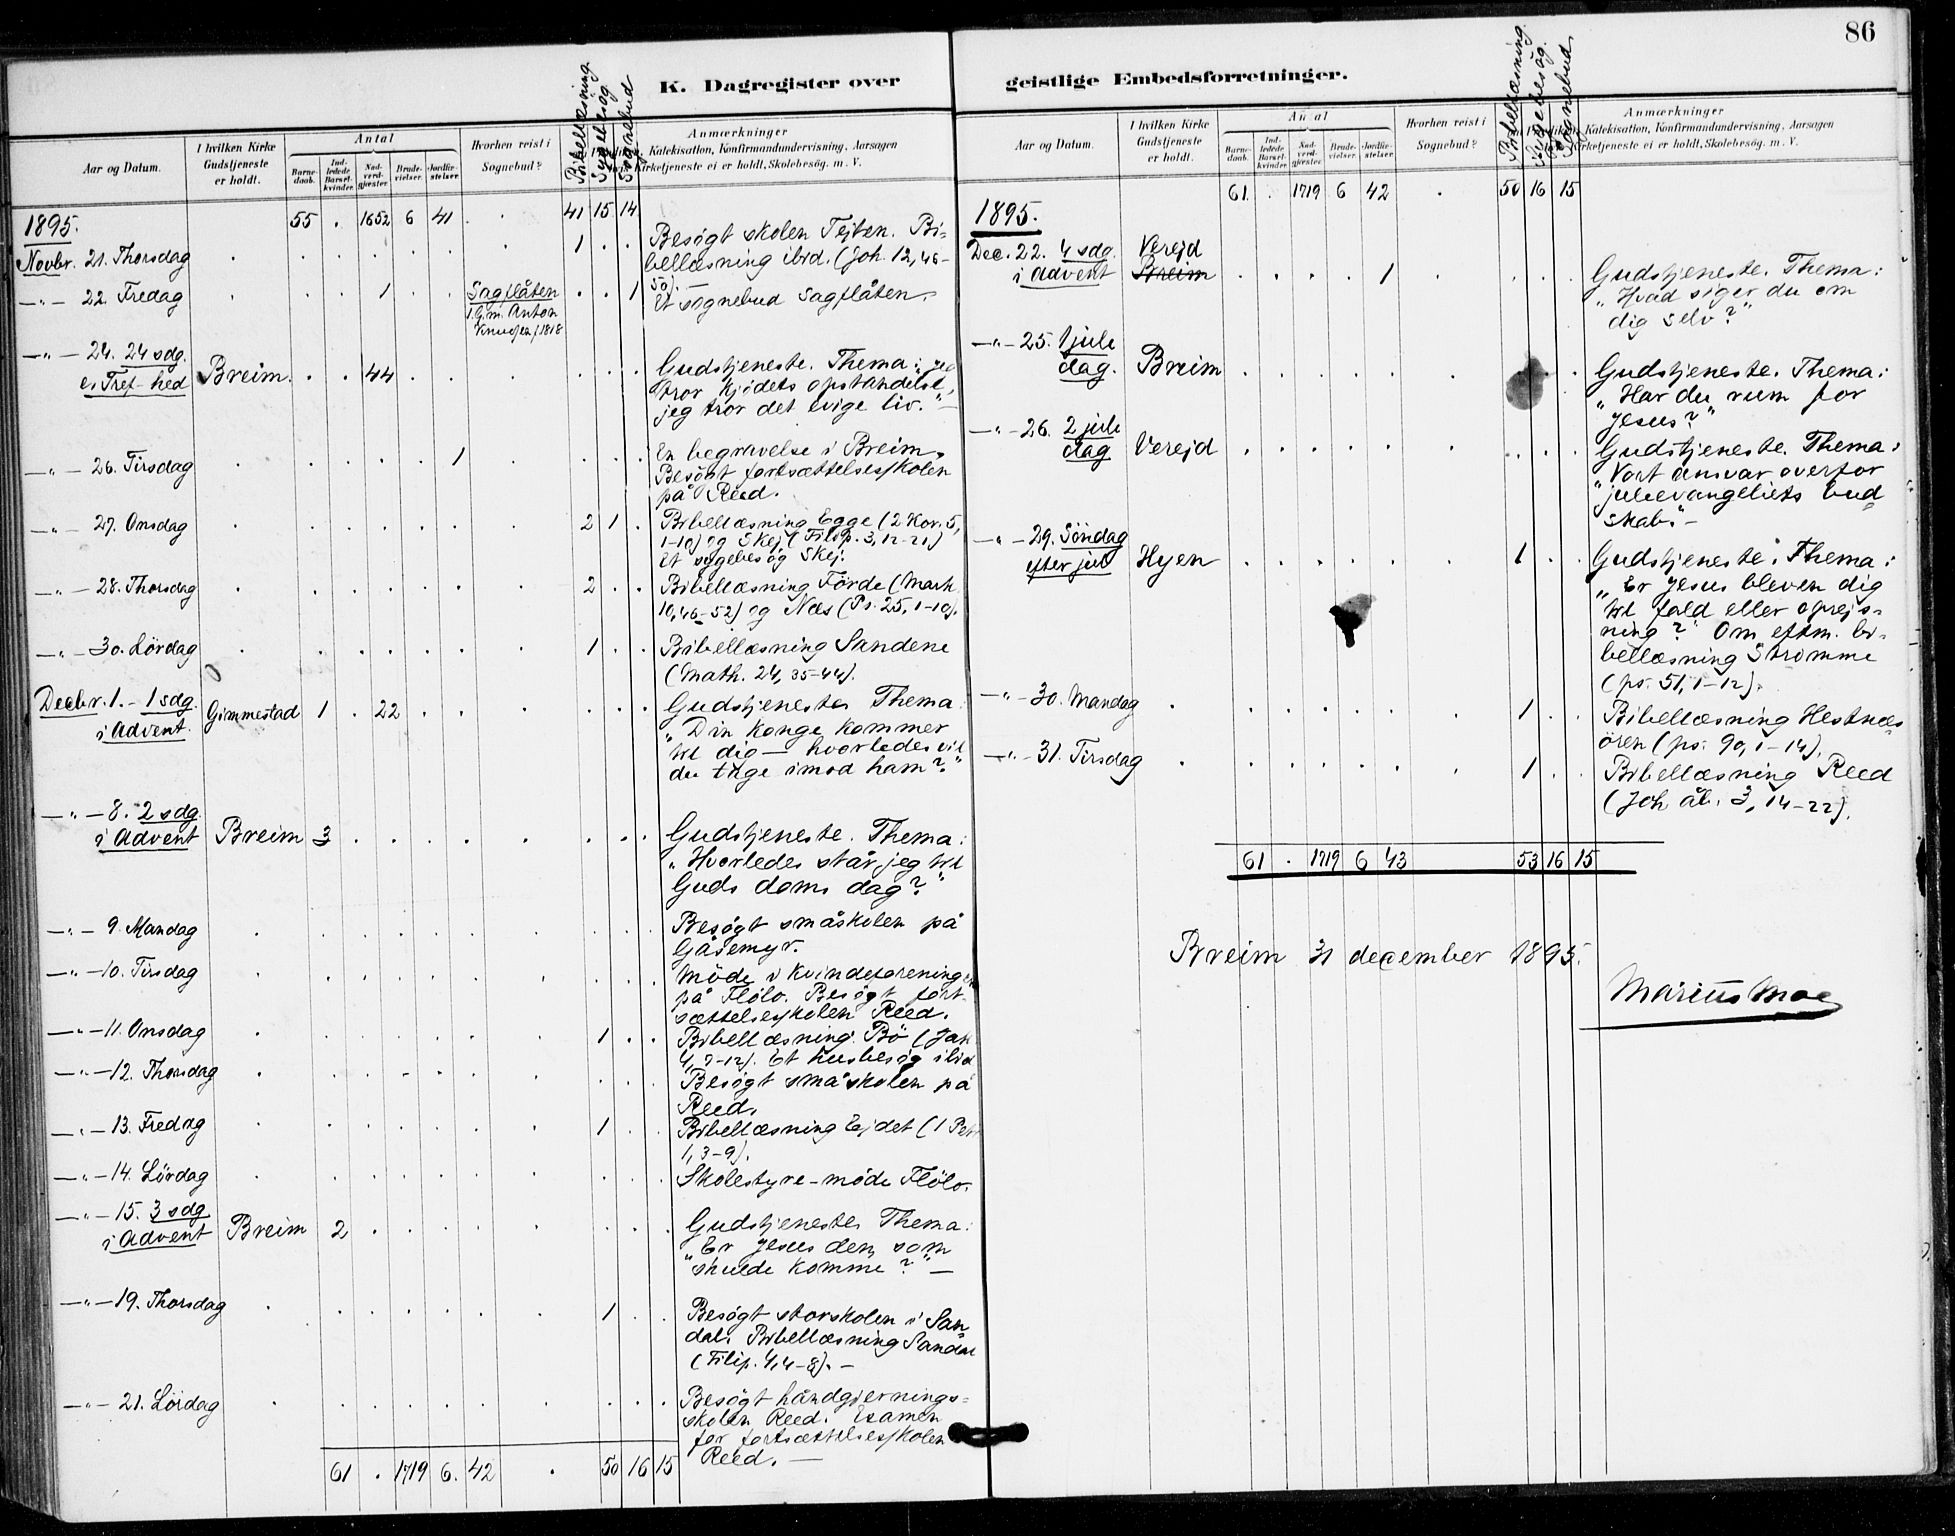 86
K. Dagregister over
geistlige Embedsforretninger.
Aar og Datum.
I hvilken Kirke Gudstjeneste er holdt.
Antal
Barnedaab.
Indledede Barselkvinder.
Nadverdgjæster.
Brudevielser.
Jordfæstelser.
Hvorhen reist i Sognebud?
Bibellæsning.
Sygebesøg
Sognebud
Anmærkninger
Katekisation, Konfirmandundervisning, Aarsagen
Kirketjeneste ei er holdt, Skolebesøg. m. V.
1895. 55 . 1652 6 41 . 41 15 14
Novbr. 21. Thorsdag 1 . . Besøgt skolen Tejten. Bi-
bellæsning ibid. (Joh. 12, 46-
50). —
—"— 22. Fredag 1 Sagflåten 1 Et sognebud Sagflåten.
Anton
1818
—"— 24. 24 sdg.
e. Tref-hed Breim. . . 44 Gudstjeneste. Thema: "Jeg
tror kjødets opstandelse,
jeg tror det evige liv." —
—"— 26. Tirsdag 1 En begravelse i Breim.
Besøgt fortsættelsesskolen
på Reed.
—"— 27. Onsdag 2 1 . Bibellæsning Egge (2 Kor. 5,
1-10) og Skej (Filip. 3, 12-21)
Et sygebesøg Skej.
—"— 28. Thorsdag 2 . . Bibellæsning Förde (Mark
10, 46-52) og Næs (Ps. 25, 1-10).
—"— 30. Lördag 1 . . Bibellæsning Sandene
(Math. 24, 35-44).
Decbr. 1. - 1 sdg.
i Advent. Gimmestad 1 . 22 Gudstjeneste Thema
"Din konge kommer
til dig — hvorledes vil
du tage imod ham?"
—"— 8. 2 sdg.
i Advent Breim 3 Gudstjeneste. Thema:
"Hvorledes står jeg til
Guds doms dag?"
—"— 9. Mandag Besøgt småskolen på
Gåsemyr.
—"— 10. Tirsdag Möde i kvindeforening
på Flölo. Besøgt fort-
sættelsesskolen Reed.
—"— 11. Onsdag 1 . . Bibellæsning Bö (Jak
4, 7-12). Et husbesøg ibid
—"— 12. Thorsdag Besøgt småskolen på
Reed.
—"— 13. Fredag 1 . . Bibellæsning Ejdet (1 Pet
1, 3-9).
—"— 14. Lördag Skolestyre-möde Flölo.
—"— 15. 3 sdg
i Advent Breim 2 Gudstjeneste Thema:
"Er Jesus den, som
skulde komme?" —
—"— 19. Thorsdag 1 . . Besøgt storskolen i San-
dal. Bibellæsning Sandal
(Filip. 4, 4-8). —
—"— 21. Lördag Besøgt håndgjernings-
skolen Reed. Examen
for fortsættelsesskolen
Reed. —
61 . 1719 6. 42 . 50 16 15
Aar og Datum.
I hvilken Kirke Gudstjeneste er holdt.
Antal
Barnedaab.
Indledede Barselkvinder.
Nadverdgjæster.
Brudevielser.
Jordfæstelser.
Hvorhen reist i Sognebud?
Bibellæsning
Sygebesøg.
Sognebud
Anmærkninger
Katekisation, Konfirmandundervisning, Aarsagen
Kirketjeneste ei er holdt, Skolebesøg. m. V.
61 . 1719 6 42 . 50 16 15
1895.
Dec. 22. 4 sdg. Verejd
i Advent Breim 1 Gudstjeneste. Thema:
"Hvad siger du om
dig selv?"
—"— 25. 1 jule
dag. Breim Gudstjeneste. Thema:
"Har du rum for
Jesus?"
—"— 26. 2 jule
dag Verejd Gudstjeneste. Thema:
"Vort ansvar overfor
juleevangeliets bud-
skab." —
—"— 29. Söndag
efter jul Hyen 1 . . Gudstjeneste. Thema:
"Er Jesus bleven dig
til fald eller oprejs-
ning?" Om eftm. bi-
bellæsning Strömme
(ps. 51, 1-12).
—"— 30. Mandag 1 . . Bibellæsning Hestnæs-
ören (ps. 90, 1-14).
—"— 31. Tirsdag 1 . . Bibellæsning Reed
(Joh åb. 3, 14-22).
61 . 1719 6 43 53 16 15
Breim 31 december 1895.
Marius Moe